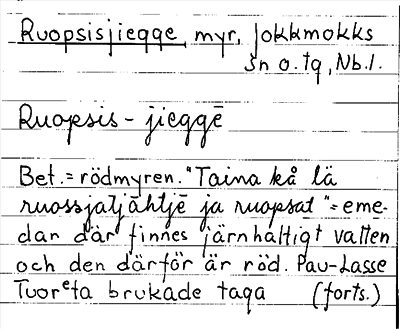 Ruopsisjiegge, myr, Jokkmokks
Sn o. tg, Nb. l.
Ruopsis - jieggē
Bet. = rödmyren. "Taina kå lä
ruossjatjāhtjē ja ruopsat" = eme-
dan där finnes järnhaltigt vatten
och den därför är röd. Pav-Lasse
Tuoreta brukade taga (forts.)